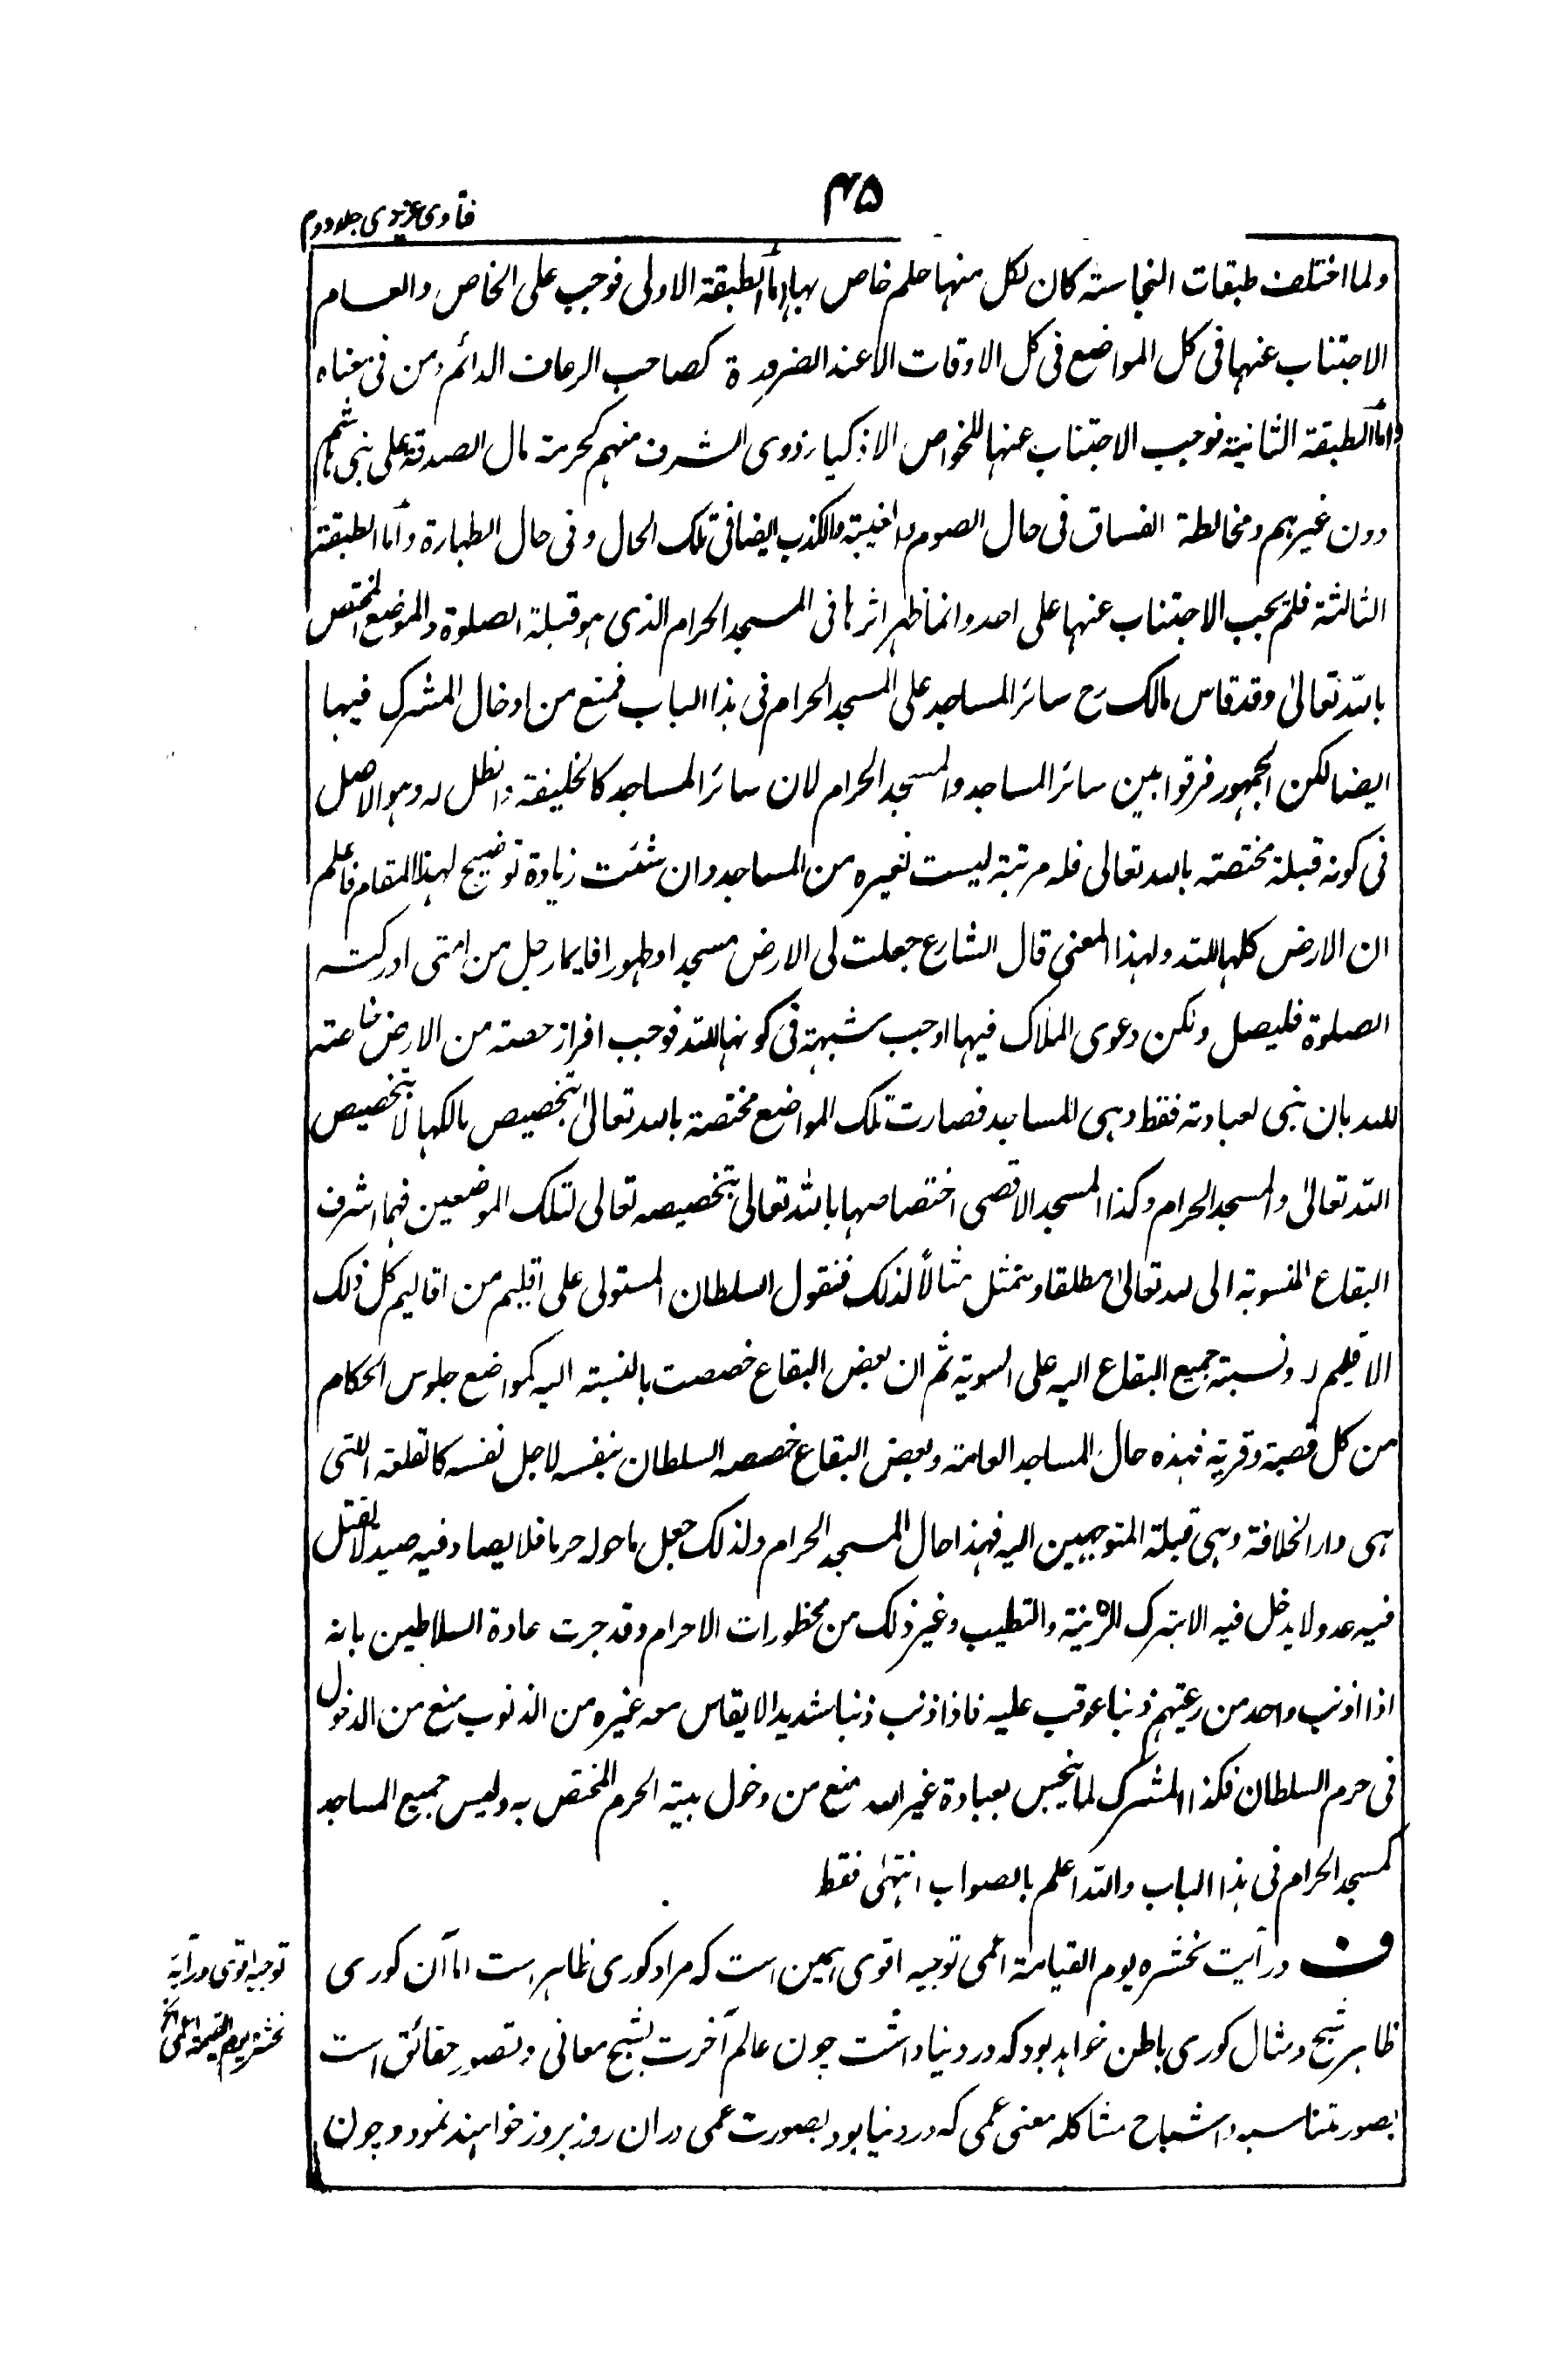 ۴۵
فتاوی عزیزی جلد دوم
ولما اختلف طبقات النجاسته کان لکل منہا حکم خاص بہا اما الطبقة الاولی فوجب علی الخاص والعام
الاجتناب عنہا فی کل المواضع فی کل الاوقات الا عند الضرورة کصاحب الرعاف الدائم ومن فی معناہ
واما الطبقة الثانیة فوجب الاجتناب عنہا للخواص الاذکیاء ذوی الشرف منہم کحرمة مال الصدقة علی بنی ہاشم
دون غیرہم ومخالطة الفساق فی حال الصوم والغیبة والکذب ایضا فی تلک الحال وفی حال الطہارة واما الطبقة
الثالثة فلم یجب الاجتناب عنہا علی احد وانما ظہر اثرہا فی المسجد الحرام الذی ہو قبلة الصلوة والموضع المختص
باللہ تعالیٰ وقد قاس مالک رح سائر المساجد علی المسجد الحرام فی ہذا الباب فمنع من ادخال المشرک فیہا
ایضا لکن الجمہور فرقوا بین سائر المساجد والمسجد الحرام لان سائر المساجد کالخلیفة والظل لہ وہو الاصل
فی کونہ قبلة مختصة باللہ تعالی فلہ مرتبة لیست لغیرہ من المساجد وان شئت زیادة توضیح لہذا المقام فاعلم
ان الارض کلہا للہ ولہذا المعنی قال الشارع جعلت لی الارض مسجدا وطہورا فایما رجل من امتی ادرکتہ
الصلوة فلیصل ولکن دعوی الملاک فیہا اوجب شبہة فی کونہا للہ فوجب افراز حصة من الارض خاصة
للہ بان بنی لعبادتہ فقط وہی المساجد فصارت تلک المواضع مختصة باللہ تعالیٰ بتخصیص مالکہا لا بتخصیص
اللہ تعالیٰ والمسجد الحرام وکذا المسجد الاقصی اختصاصہا باللہ تعالی بتخصیصہ تعالی لتلک الموضعین فہما اشرف
البقاع المنسوبة الی اللہ تعالیٰ مطلقا ونمثل مثالاً لذلک فنقول السلطان المستولی علی اقلیم من اقالیم کل ذلک
الاقلیم لہ ونسبة جمیع البقاع الیہ علی السویة ثم ان بعض البقاع خصصت بالنسبة الیہ کمواضع جلوس الحکام
من کل قصبة وقریة فہذہ حال المساجد العامة وبعض البقاع خصصہ السلطان بنفسہ لاجل نفسہ کالقلعة التی
ہی دار الخلافة وہی قبلة المتوجہین الیہ فہذا حال المسجد الحرام ولذلک جعل ماحولہ حرما فلا یصاد فیہ صید ولا یقتل
فیہ عدو ولا یدخل فیہ الا بترک الزینة والتطیب وغیر ذلک من محظورات الاحرام وقد جرت عادة السلاطین بانہ
اذا اذنب واحد من رعیتہم ذنبا عوقب علیہ فاذا اذنب ذنبا شدیدا لا یقاس معہ غیرہ من الذنوب منع من الدخول
فی حرم السلطان فکذا المشرک لما تنجس بعبادة غیر اللہ منع من دخول بیتہ الحرم المختص بہ ولیس جمیع المساجد
کمسجد الحرام فی ہذا الباب واللہ اعلم بالصواب انتہٰی فقط
ف در آیت نحشرہ یوم القیامة اعمی توجیہ اقوی ہمین است کہ مراد کوری ظاہر است اما آن کوری
ظاہر شبح ومثال کوری باطن خواہد بود کہ در دنیا داشت چون عالم آخرت بشبح معانی وتصور حقائق است
بصور متناسبہ واشباح مشاکلہ معنی عمی کہ در دنیا بود بصورت عمی دران روز بروز خواہند نمود وچون
توجیہ اقوی در آیہ
نحشرہ یوم القیمة اعمی الخ